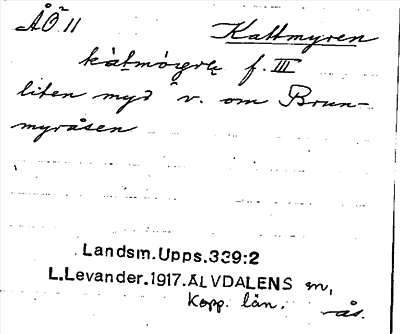 ÅÖ 11 Kattmyren
f. III
liten myr v. om Brun-
myråsen
Landsm. Upps. 339:2
L. Levander. 1917. ÄLVDALENS sn,
Kopp. län. ås.